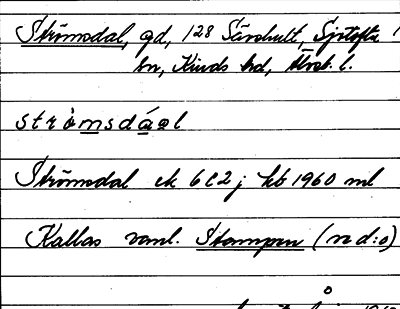 Strömsdal, gd, 128 Särshult, Sjötofta
sn, Kinds hd, Älvsb. l.
strömsdáal
Strömsdal ek 6C2j kb 1960 ml
Kallas vanl. Stampen (se d:o)